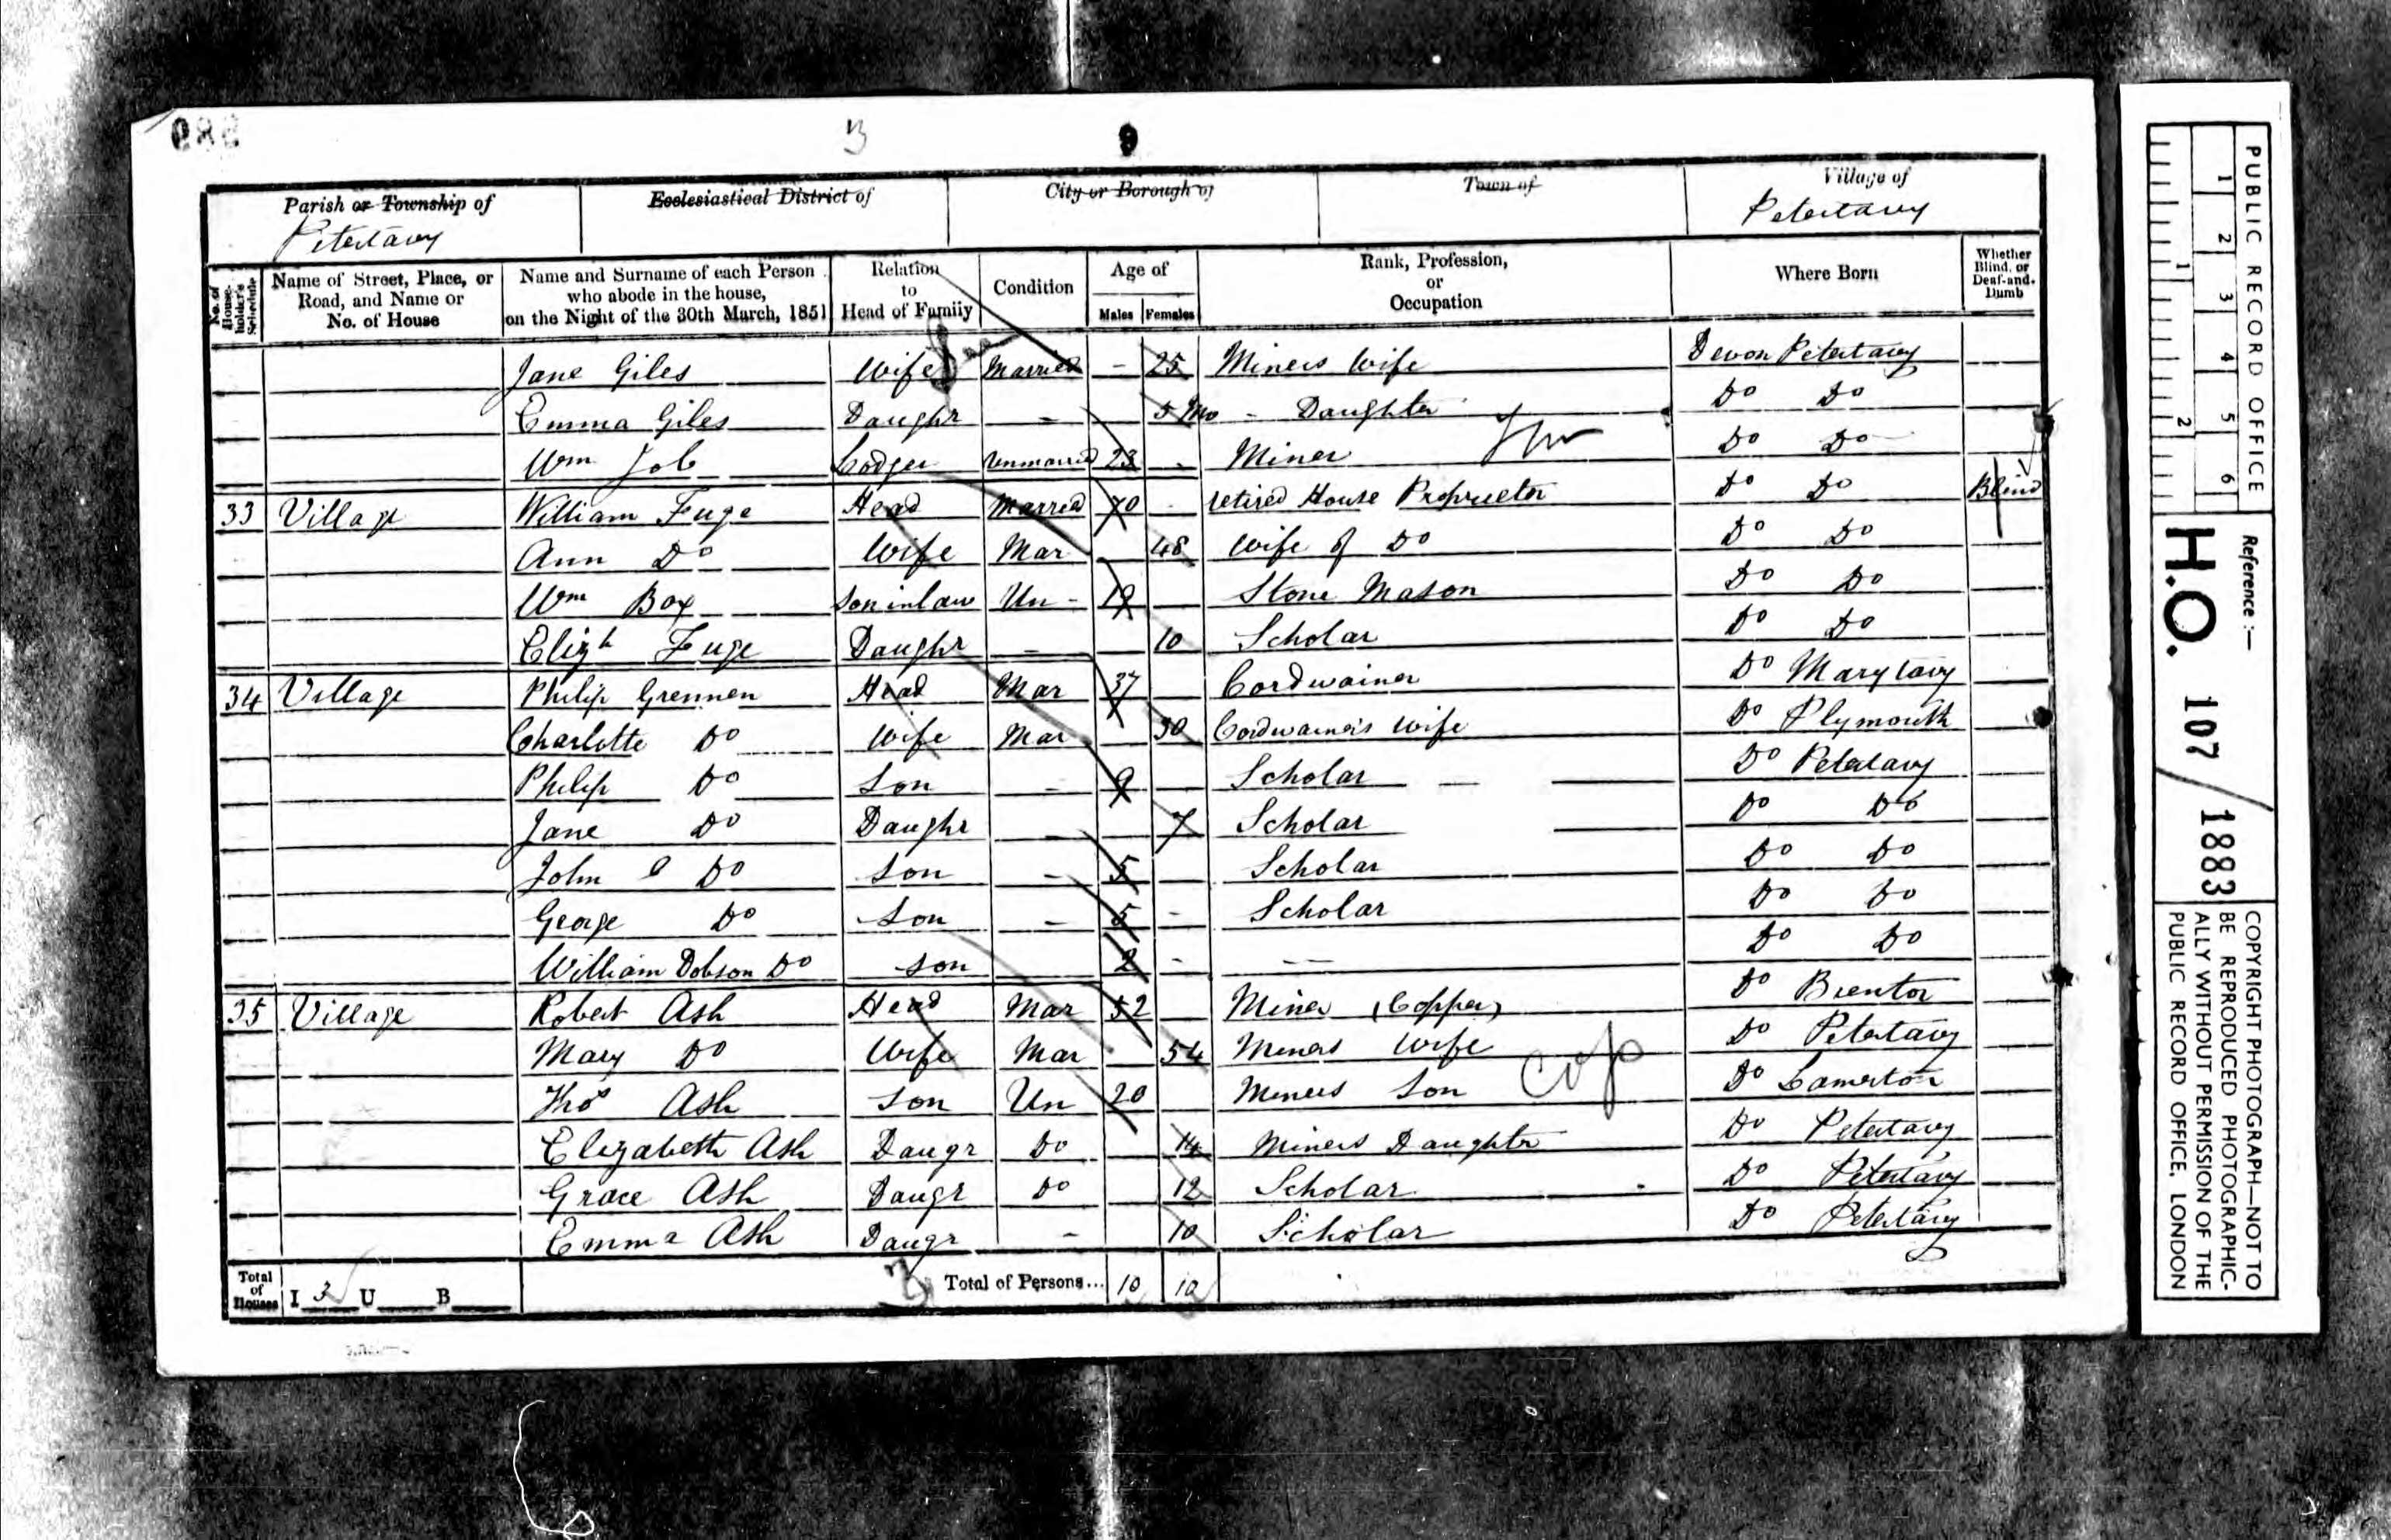 3 9
Parish or Township of
Petertavy
Ecclesiastical District of
City or Borough of
Town of
Village of
Petertavy
No. of House-holder's Schedule
Name of Street, Place, or Road, and Name or No. of House
Name and Surname of each Person who abode in the house, on the Night of the 30th March, 1851
Relation to Head of Family
Condition
Age of
Males Females
Rank, Profession, or Occupation
Where Born
Whether Blind, or Deaf-and-Dumb
Jane Giles Wife Married - 25 Miners Wife Devon Petertavy
Emma Giles Daughr - 5 Mo - Daughter Do Do
Wm Job Lodger Unmarried 23 - Miner Do Do
33 Village William Fuge Head Married 70 - retired House Proprietor Do Do Blind
Ann Do Wife Mar 48 Wife of Do Do Do
Wm Box Son in law Un - 19 Stone Mason Do Do
Elizh Fuge Daughr - 10 Scholar Do Do
34 Village Philip Grennen Head Mar 37 Cordwainer Do Marytavy
Charlotte Do Wife Mar 30 Cordwainer's Wife Do Plymouth
Philip Do Son - 9 Scholar Do Petertavy
Jane Do Daughr - 7 Scholar Do Do
John Do Son - 5 Scholar Do Do
George Do Son - 5 - Scholar Do Do
William Dobson Do Son 2 - Do Do
35 Village Robert Ash Head Mar 52 Miner (Copper) Do Brentor
Mary Do Wife Mar 54 Miners Wife Do Petertavy
Thos Ash Son Un 20 Miners Son Do Lamerton
cop
Elizabeth Ash Daugr Do 14 Miners Daughter Do Petertavy
Grace Ash Daugr Do 12 Scholar Do Petertavy
Emma Ash Daugr - 10 Scholar Do Petertavy
Total of Houses I 3 U B Total of Persons... 10 10
PUBLIC RECORD OFFICE
1 2 3 4 5 6
1 2
Reference :—
H.O. 107/1883
COPYRIGHT PHOTOGRAPH—NOT TO
BE REPRODUCED PHOTOGRAPHIC-
ALLY WITHOUT PERMISSION OF THE
PUBLIC RECORD OFFICE, LONDON